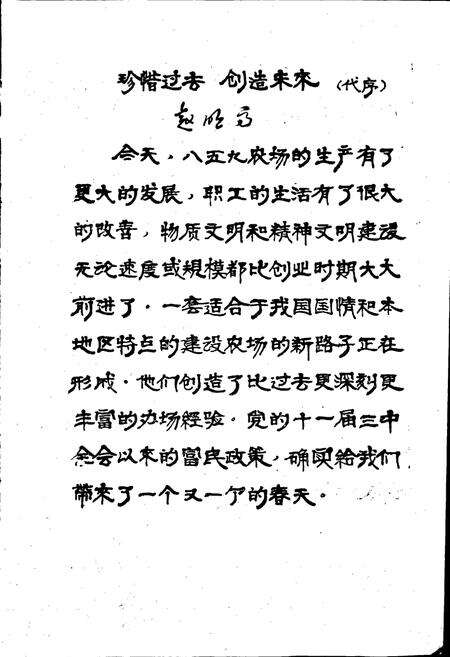 珍惜过去 创造未来 （代序）
赵明高
今天，八五九农场的生产有了
更大的发展，职工的生活有了很大
的改善，物质文明和精神文明建设
无论速度或规模都比创业时期大大
前进了．一套适合于我国国情和本
地区特点的建设农场的新路子正在
形成．他们创造了比过去更深刻更
丰富的办场经验．党的十一届三中
全会以来的富民政策，确实给我们
带来了一个又一个的春天。